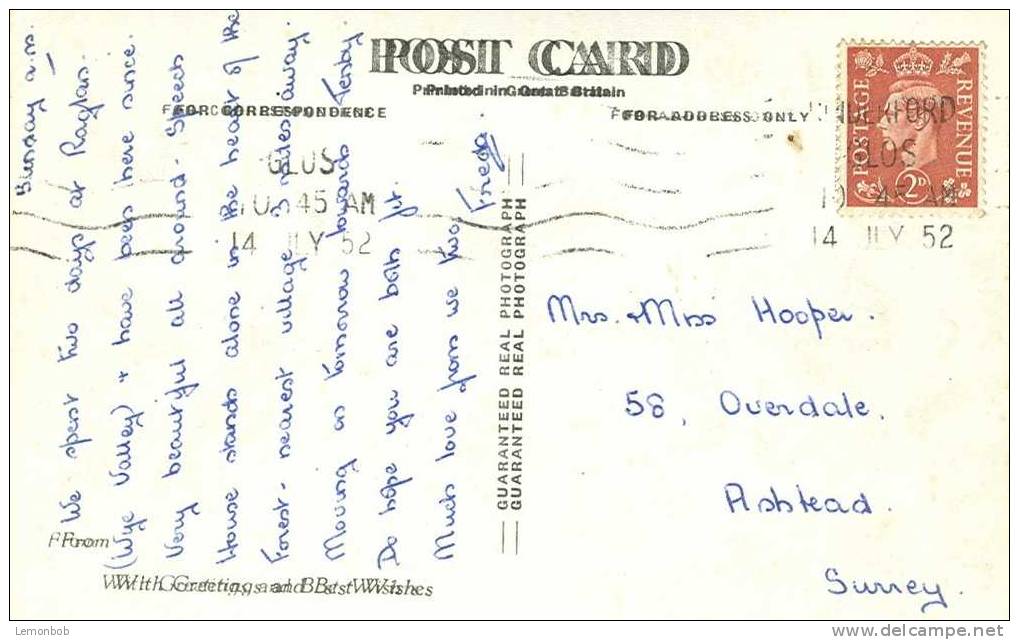 POST CARD
Printed in Great Britain
FOR CORRESPONDENCE
FOR ADDRESS ONLY
POSTAGE
REVENUE
2D
GLOS
10 45 AM
14 JLY 52
NDERFORD
GLOS
10 45 AM
14 JLY 52
Sunday a.m.
We spent two days at Raglan.
(Wye Valley) + have been here since.
Very beautiful all around - Speech
House stands alone in the heart of the
Forest - nearest village 3 miles away.
Moving on tomorrow towards Tenby
Do hope you are both fit
Much love from we two,
Freda.
GUARANTEED REAL PHOTOGRAPH
Mrs. & Miss Hooper.
58, Overdale,
Ashtead.
Surrey.
From
With Greetings and Best Wishes
Lemonbob
delcampe.net